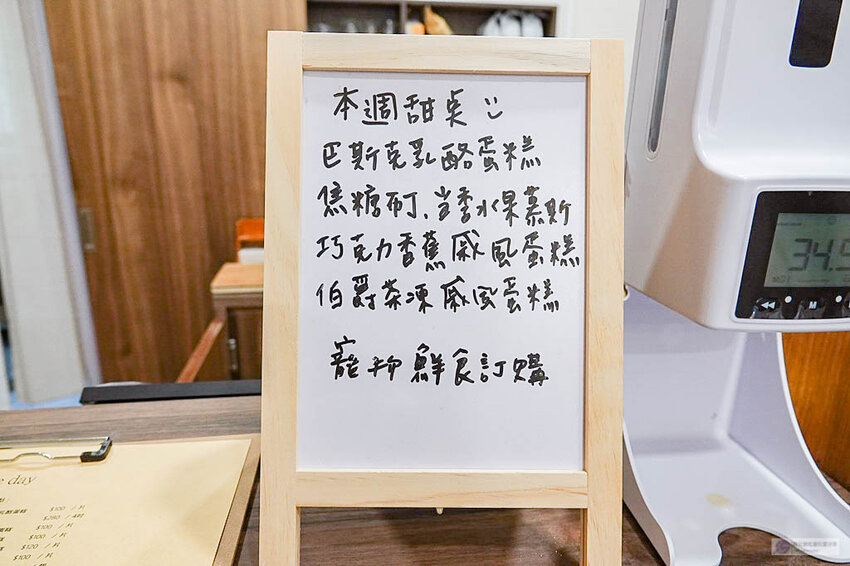 本週甜桌 :)
巴斯克乳酪蛋糕
焦糖布丁、當季水果慕斯
巧克力香蕉戚風蛋糕
伯爵茶凍戚風蛋糕
寵物鮮食訂購
34.5
M
day
$100 / 片
$280 / 4吋
$100 / 片
$100 / 片
$120 / 片
$100 / 片